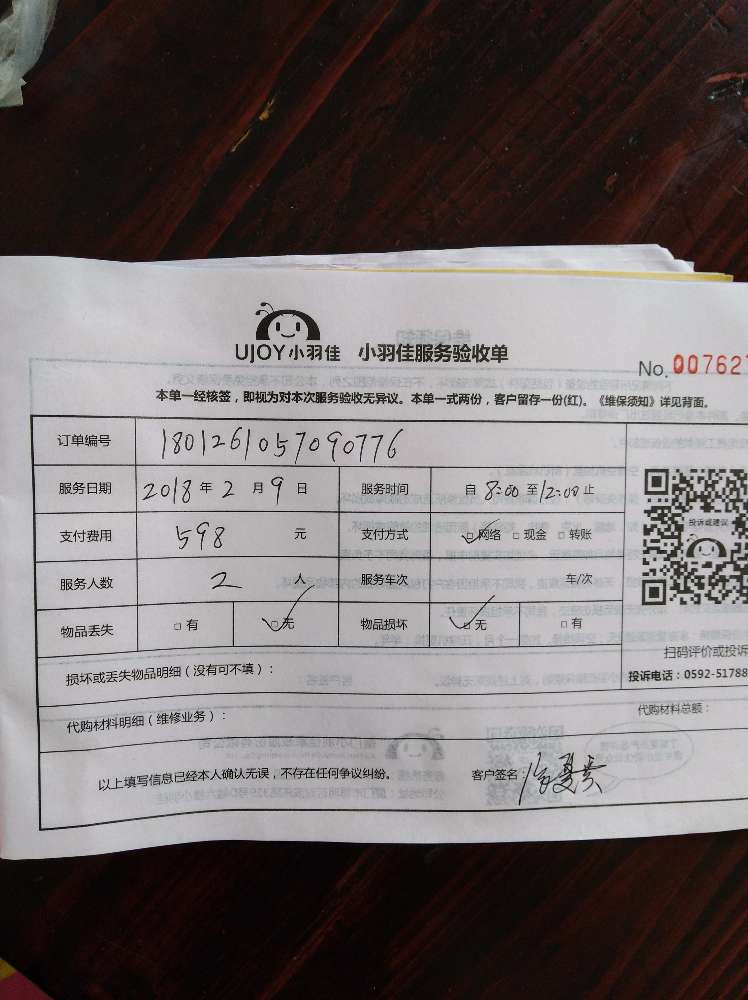 UJOY小羽佳 小羽佳服务验收单
No. 00762
本单一经核签，即视为对本次服务验收无异议。本单一式两份，客户留存一份(红)。《维保须知》详见背面。
订单编号 1801261057090776
服务日期 2018年2月9日 服务时间 自8:00至12:00止
支付费用 598 元 支付方式 ☑网络 □现金 □转账
服务人数 2 人 服务车次 车/次
物品丢失 □有 ☑无 物品损坏 ☑无 □有
投诉或建议
扫码评价或投诉
投诉电话：0592-51788
损坏或丢失物品明细（没有可不填）：
代购材料明细（维修业务）： 代购材料总额：
以上填写信息已经本人确认无误，不存在任何争议纠纷。 客户签名：